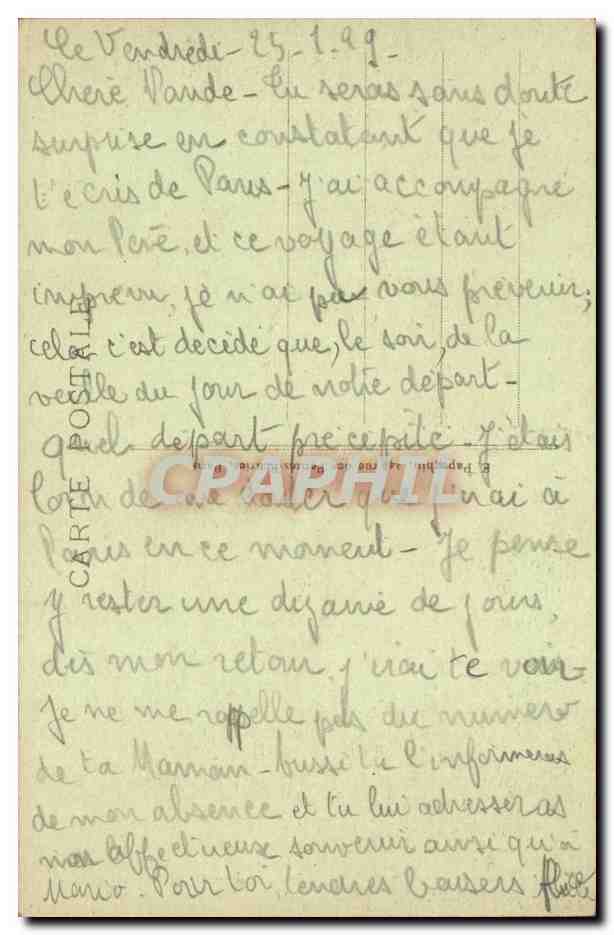 Le Vendredi - 25-1-29-
Chère Vande - Tu seras sans doute
surprise en constatant que je
t'écris de Paris - J'ai accompagné
mon Père, et ce voyage étant
imprévu, je n'ai pu vous prévenir;
cela c'est décidé que, le soir, de la
veille du jour de notre départ -
quel départ précipité - J'étais
loin de me que j'irai à
Paris en ce moment - Je pense
y rester une dizaine de jours,
dès mon retour, j'irai te voir -
Je ne me rappelle pas du numéro
de ta Maman - aussi tu l'informeras
de mon absence et tu lui adresseras
mon affectueux souvenir ainsi qu'à
Mario. Pour toi, tendres baisers
CARTE POSTALE
CPAPHIL